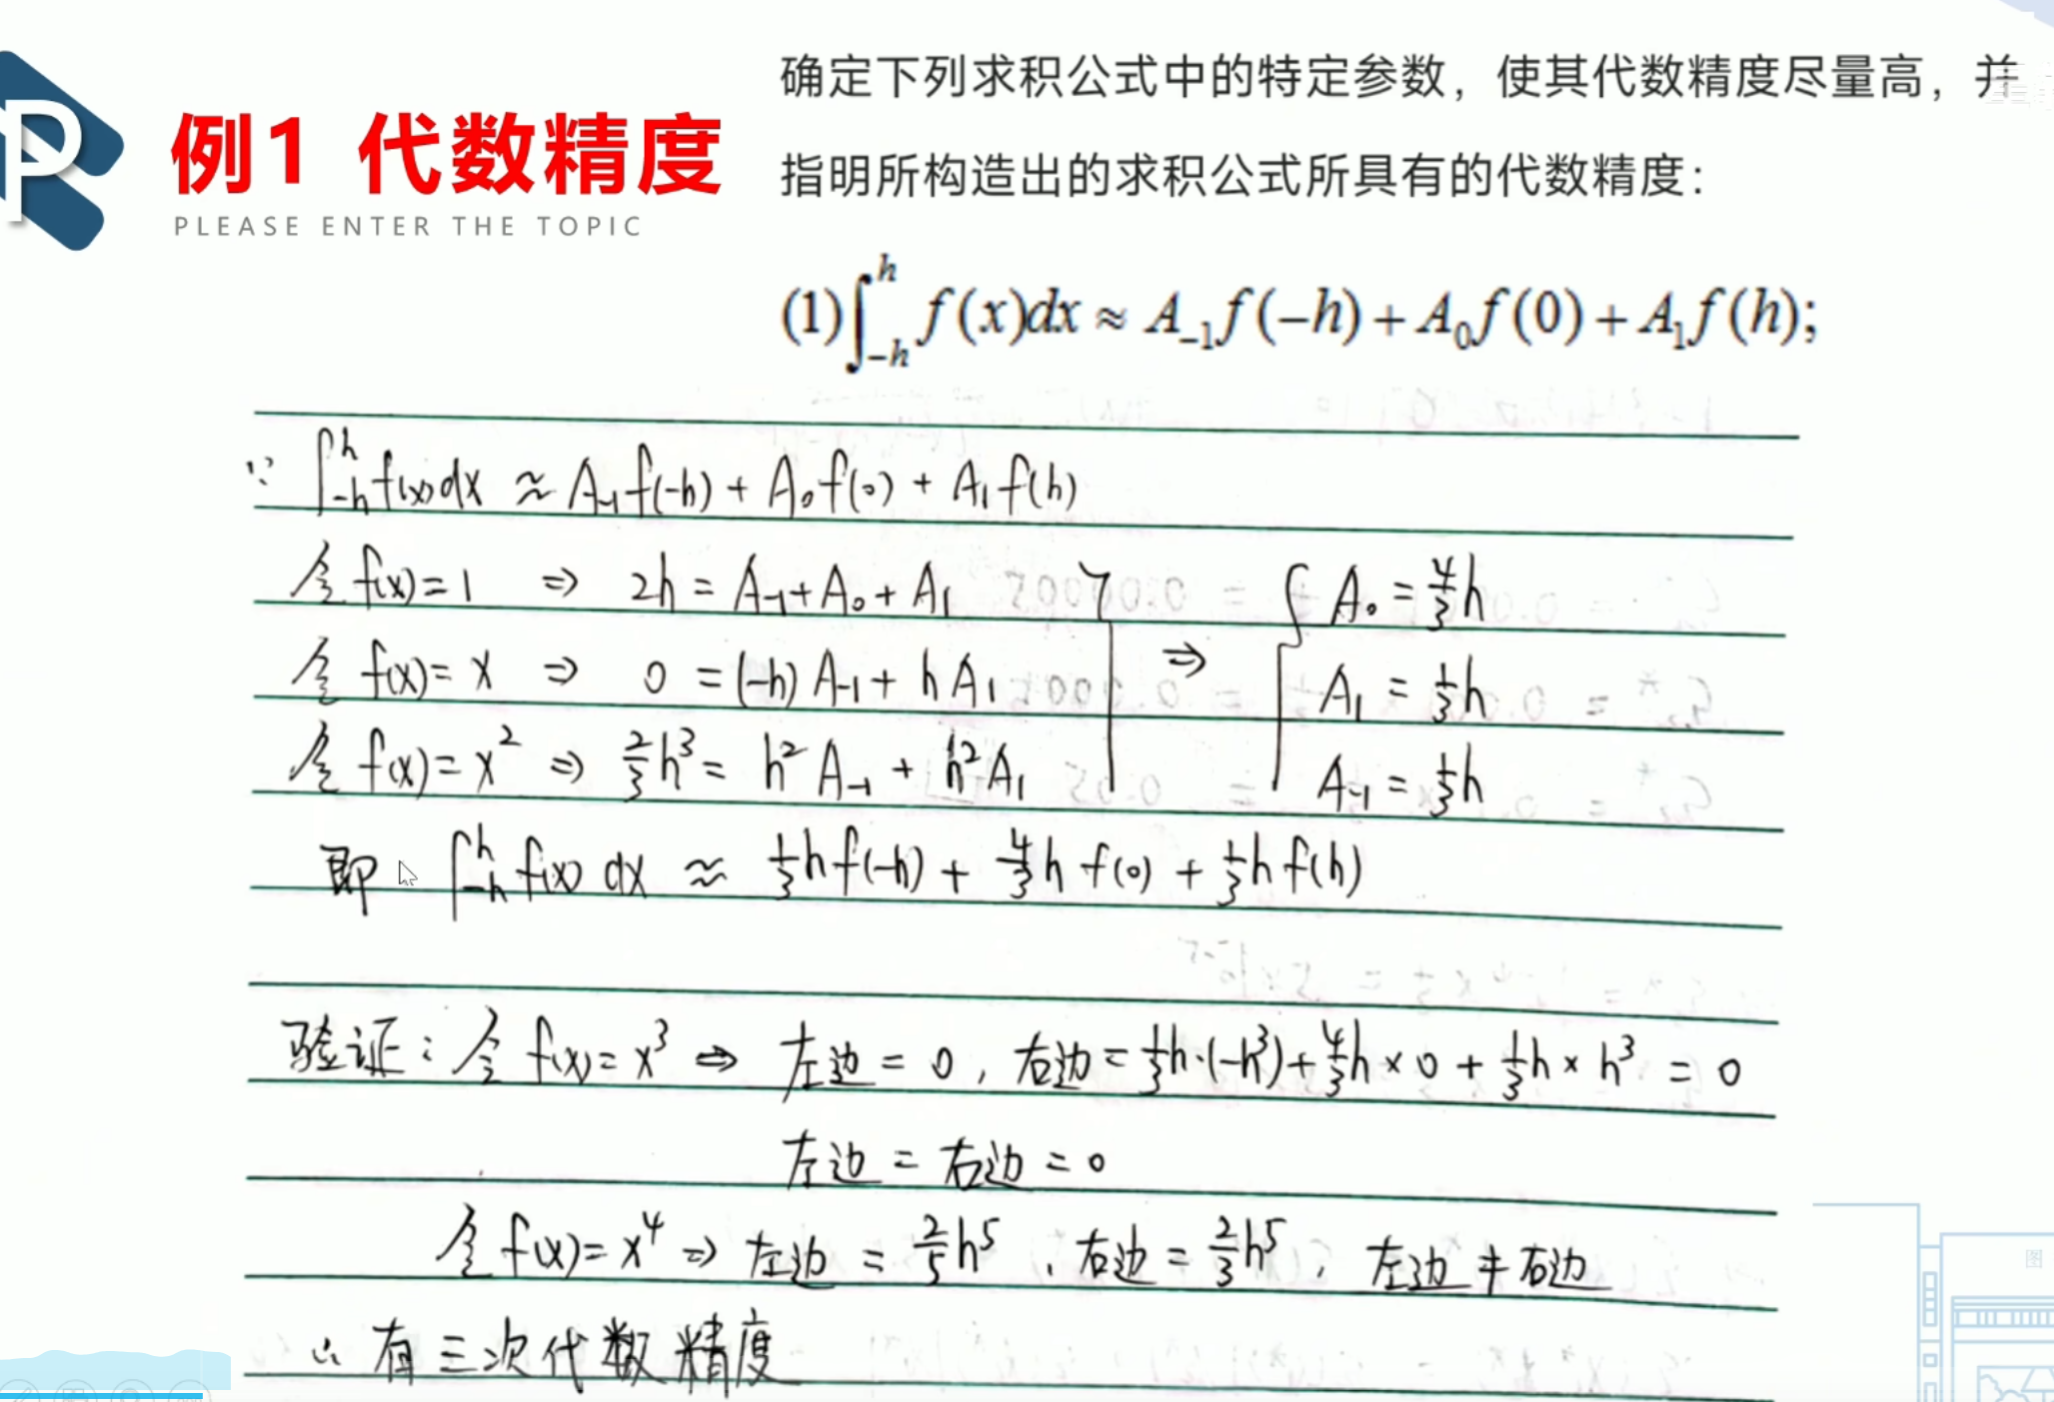 P
例1 代数精度
PLEASE ENTER THE TOPIC
确定下列求积公式中的特定参数，使其代数精度尽量高，并
指明所构造出的求积公式所具有的代数精度：
(1)∫_{-h}^{h} f(x)dx ≈ A_{-1}f(-h) + A_0f(0) + A_1f(h);
∵ ∫_{-h}^{h} f(x)dx ≈ A_{-1}f(-h) + A_0f(0) + A_1f(h)
令 f(x)=1 ⇒ 2h = A_{-1}+A_0+A_1
令 f(x)=x ⇒ 0 = (-h)A_{-1} + hA_1
令 f(x)=x² ⇒ 2/3 h³ = h²A_{-1} + h²A_1
⇒ { A_0 = 4/3 h
A_1 = 1/3 h
A_{-1} = 1/3 h
即 ∫_{-h}^{h} f(x)dx ≈ 1/3 h f(-h) + 4/3 h f(0) + 1/3 h f(h)
验证：令 f(x)=x³ ⇒ 左边 = 0，右边 = 1/3 h·(-h³) + 4/3 h × 0 + 1/3 h × h³ = 0
左边 = 右边 = 0
令 f(x)=x⁴ ⇒ 左边 = 2/5 h⁵，右边 = 2/3 h⁵，左边 ≠ 右边
∴ 有三次代数精度
图